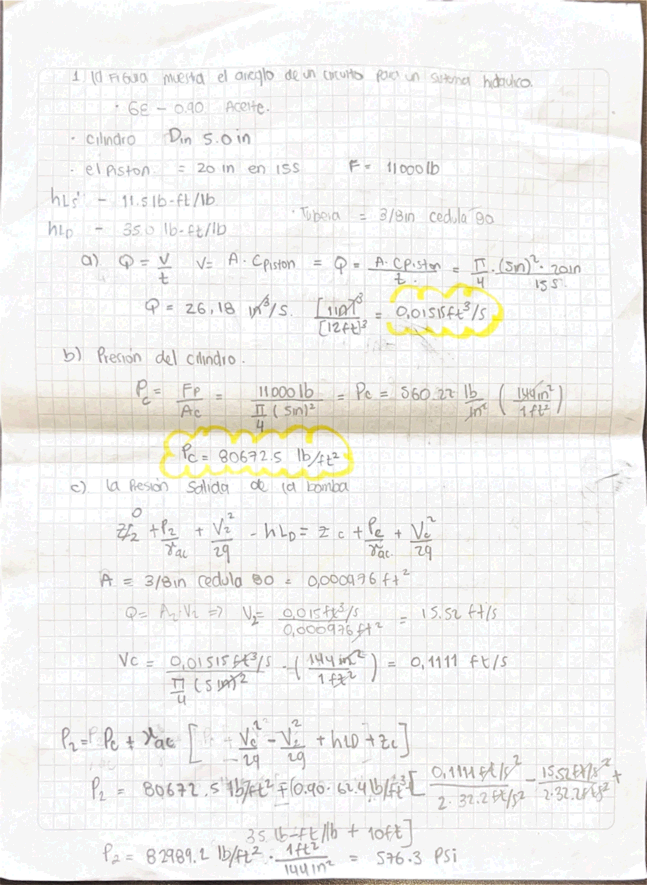 1 la Figura muestra el areglo de un circuito para un sistema hidraulico.
· GE - 0.90 Aceite.
· cilindro Din 5.0 in
· el Piston = 20 in en 15s F = 11000 lb
hLs - 11.5 lb-ft/lb
· Tuberia = 3/8in cedula 80
hLD - 35.0 lb-ft/lb
a) Q = V/t V = A · CPiston = Q = A · CPiston/t = π/4 · (5in)² · 20in/15s
Q = 26,18 in³/s. [1in]³/[12ft]³ = 0,01515ft³/s
b) Presión del cilindro.
Pc = FP/Ac = 11000 lb/π/4 (5in)² = Pc = 560.22 lb/in² (144in²/1ft²)
Pc = 80672.5 lb/ft²
c) la Presión Salida de la bomba
0
z2 + P2/γac + V2²/2g - hLD = zc + Pc/γac + Vc²/2g
A = 3/8in cedula 80 = 0,000976 ft²
Q = A2·V2 => V2 = 0,015ft³/s/0,000976ft² = 15.52 ft/s
Vc = 0,01515ft³/s/π/4 (5in)² · (144in²/1ft²) = 0,1111 ft/s
P2 = Pc + γac [Vc²/2g - V2²/2g + hLD + zc]
P2 = 80672.5 lb/ft² + (0.90·62.4 lb/ft³ [0,1111ft/s²/2·32.2ft/s² - 15.52ft/s²/2·32.2ft/s² +
35 lb-ft/lb + 10ft]
P2 = 82989.2 lb/ft² · 1ft²/144in² = 576.3 PSi